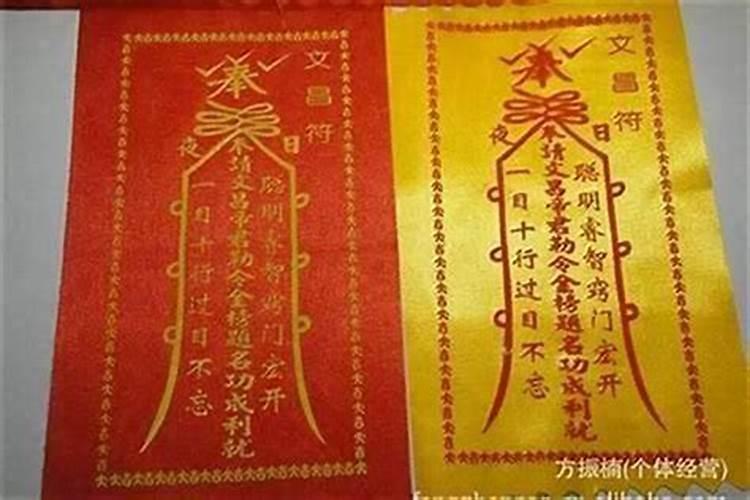 文昌符
奉
日
夜
聪明睿智窍门宏开
奉请文昌帝君勅令金榜题名功成利就
一目十行过目不忘
文昌符
奉
日
夜
聪明睿智窍门宏开
奉请文昌帝君勅令金榜题名功成利就
一目十行过目不忘
方振楠(个体经营)